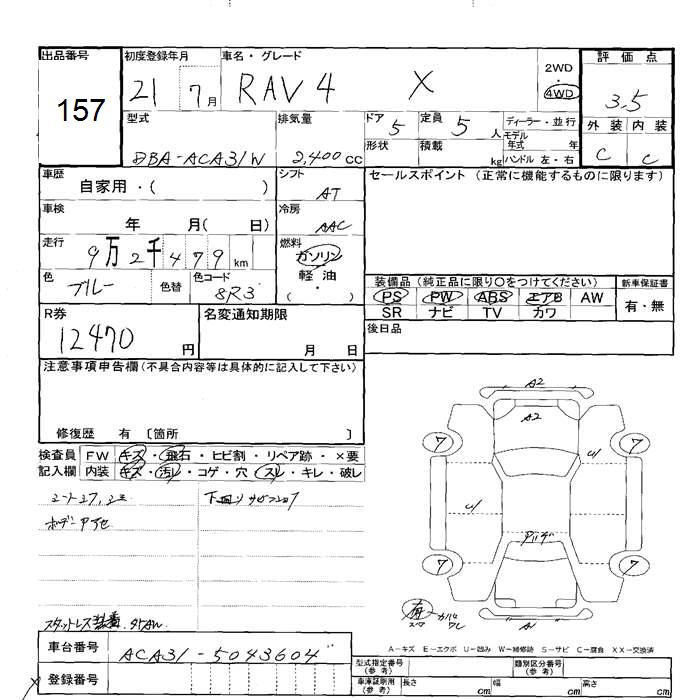 出品番号 初度登録年月 車名・グレード 評価点
157 21 7月 RAV4 X 2WD 4WD 3.5
型式 排気量 ドア 5 定員 5人 ディーラー・並行 外装 内装
DBA-ACA31W 2,400cc 形状 積載 kg モデル年式 年 ハンドル 左・右 C C
車歴 自家用・( ) シフト AT セールスポイント (正常に機能するものに限ります)
車検 年 月( 日) 冷房 AAC
走行 9万2千479km 燃料 ガソリン 軽油 ( ・ )
色 ブルー 色替 色コード 8R3
装備品 (純正品に限り○をつけてください) 新車保証書
PS PW ABS エアB AW 有・無
SR ナビ TV カワ
R券 12470円 名変通知期限 月 日 後日品
注意事項申告欄(不具合内容等は具体的に記入して下さい)
修復歴 有 〔箇所 〕
検査員 FW キズ・飛石・ヒビ割・リペア跡・×要
記入欄 内装 キズ・汚レ・コゲ・穴・スレ・キレ・破レ
A2
A2
7 7
U U
7 7
A1
スタットレス装着
車台番号 ACA31-5043604
登録番号
A-キズ E-エクボ U-凹み W-補修跡 S-サビ C-腐食 XX-交換済
型式指定番号(参考) 類別区分番号(参考)
車庫証明用(参考) 長さ cm 幅 cm 高さ cm